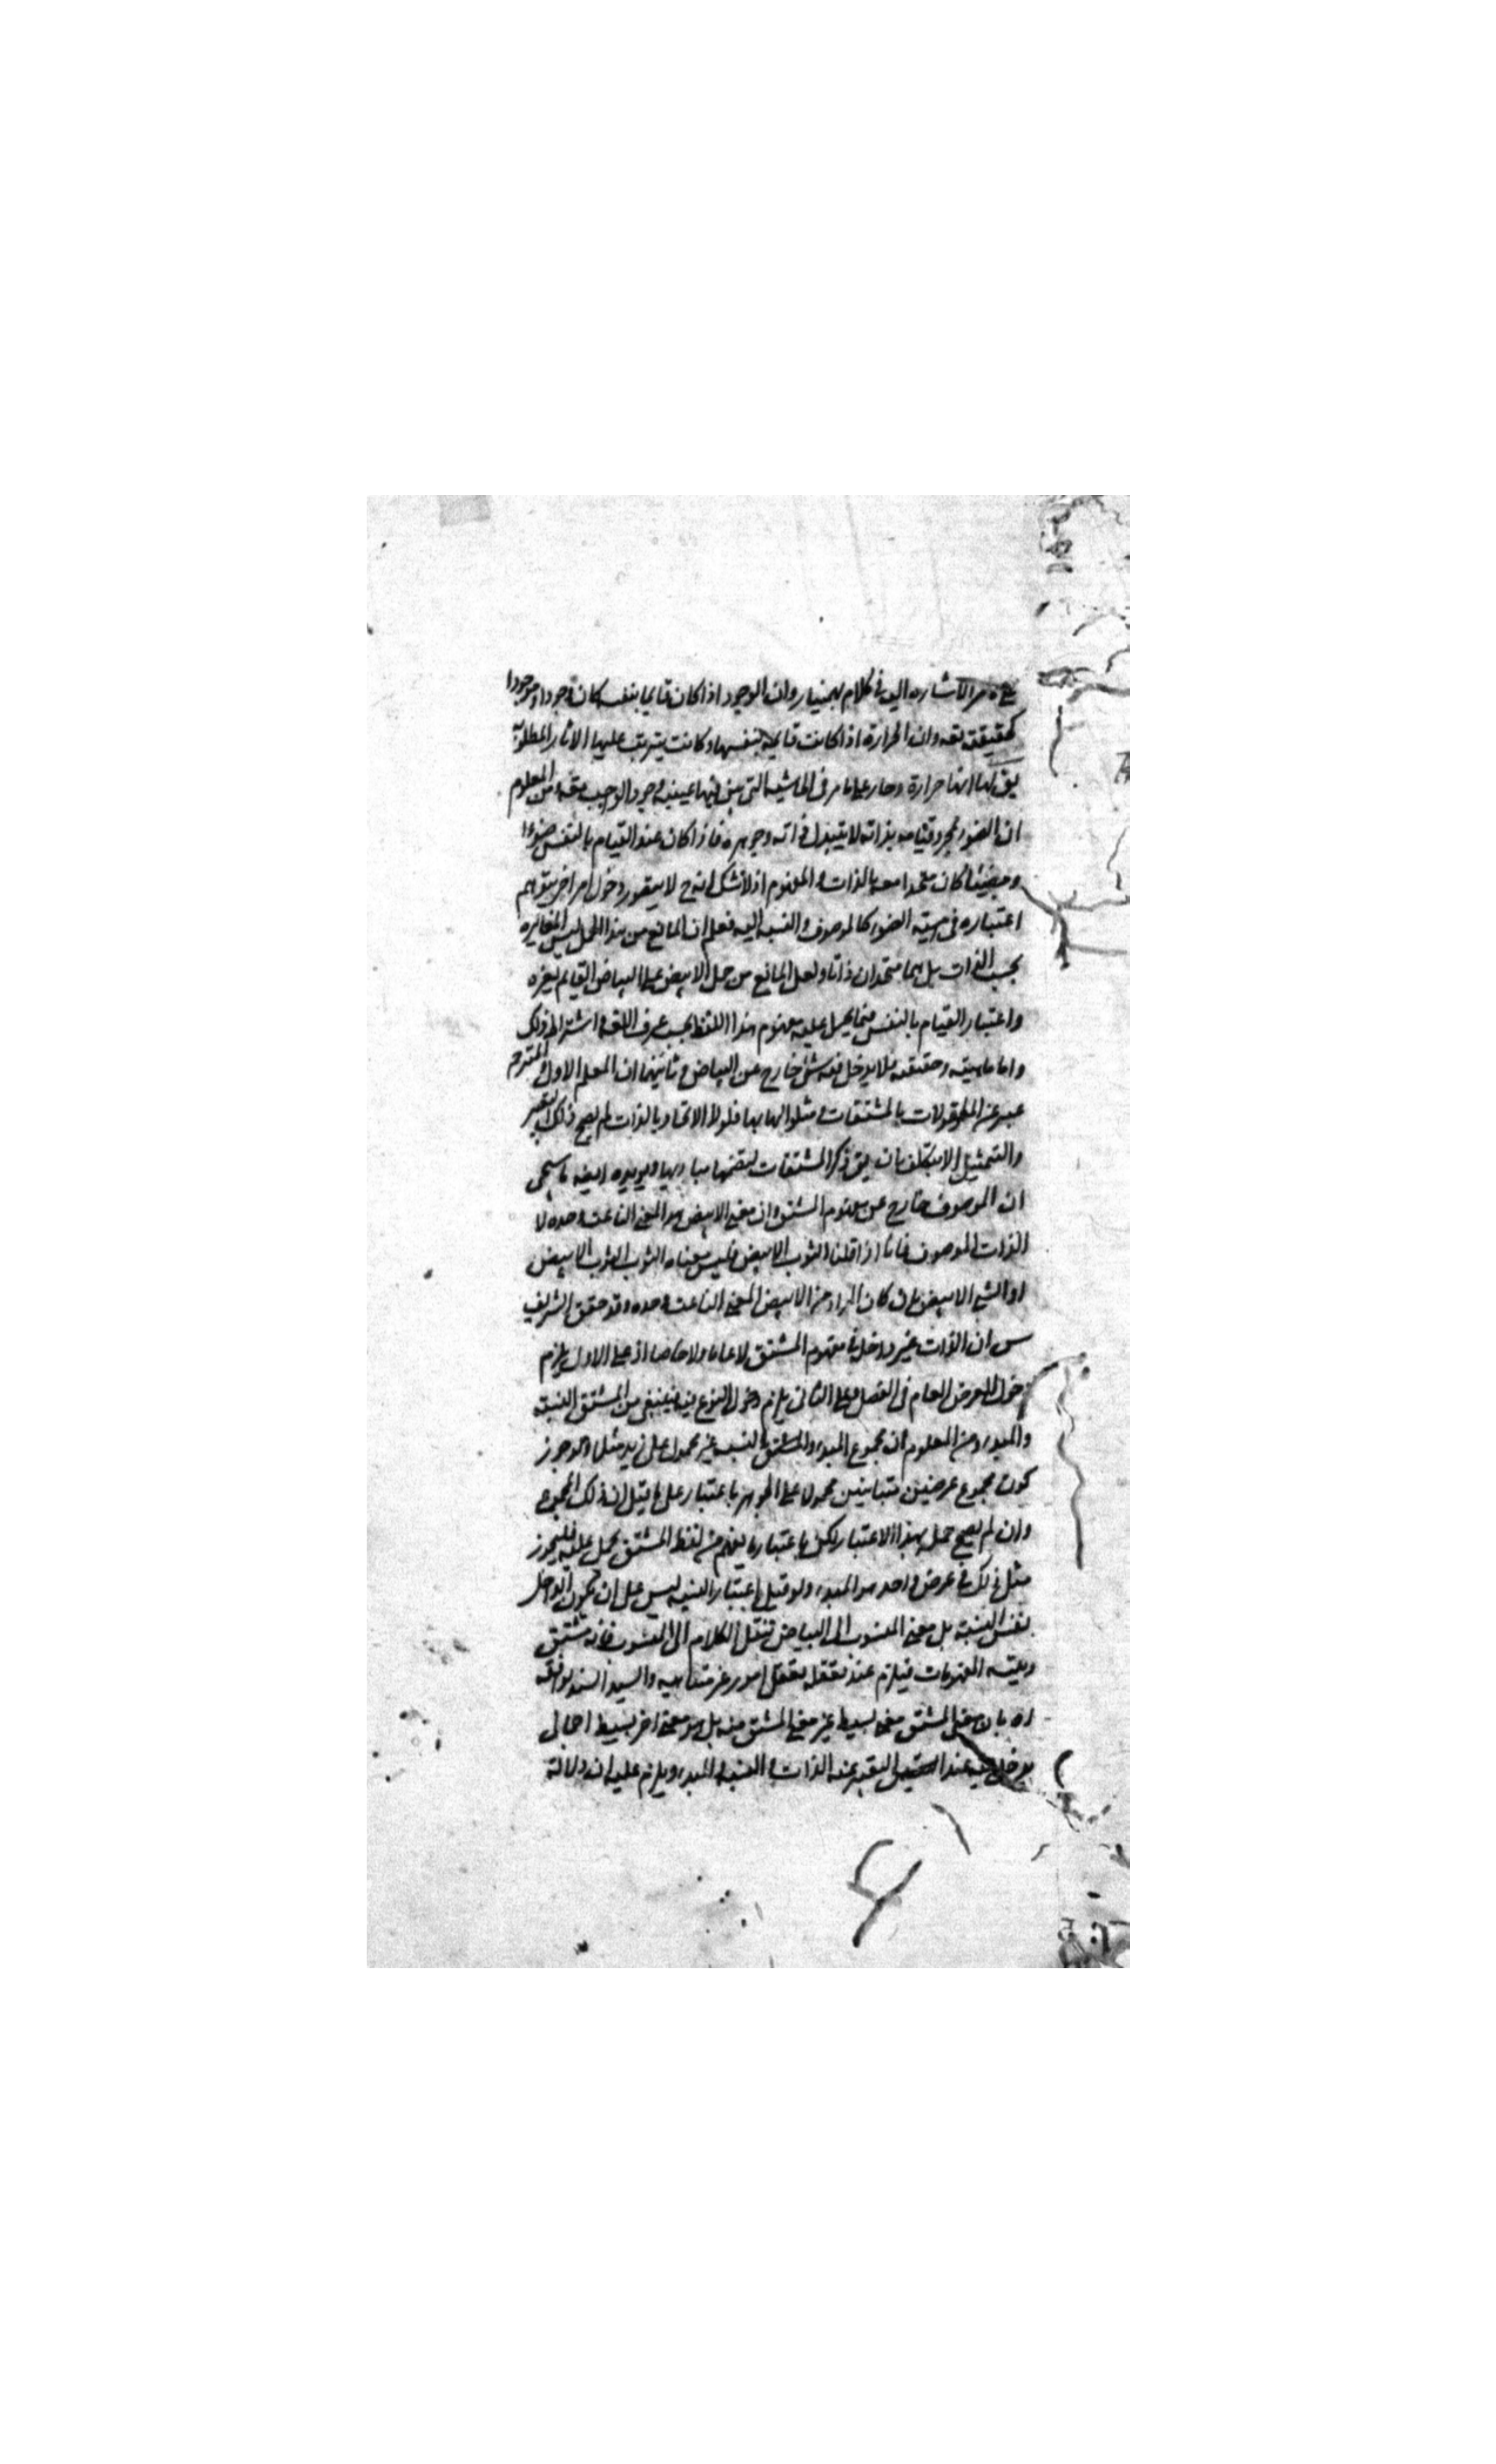 على ما مر الاشارة اليه فى كلام بهمنيار وان الوجود اذا كان قايما بنفسه كان وجودا وموجودا
كحقيقته تعه وان الحرارة اذا كانت قايمة بنفسها وكانت يترتب عليها الاثار المطلوبة
يق لها انها حرارة وحار على ما مر فى الحاشية التى بين فيها عينية وجود الواجب تعه ومن المعلوم
ان الضوء بمجرد قيامه بذاته لا يتبدل ذاته وجوهره فاذا كان عند القيام بالنفس ضوءا
ومضيئا كان متحدا معه بالذات والمفهوم اذ لا شك انه ح لا يتصور دخول امر اخر يتوهم
اعتباره فى مهية الضوء كالموصوف والنسبة اليه فعلم ان المانع من هذا الحمل ليس المغايرة
بحسب الذات بل هما متحدان ذاتا ولعل المانع من حمل الابيض على البياض القايم بغيره
واعتبار القيام بالنفس فيما يحمل عليه مفهوم هذا اللفظ بحسب عرف اللغة اشتراط ذلك
واما ماهيته وحقيقته فلا يدخل فيه شئ خارج عن البياض وثانيهما ان المعلم الاول والمترجم
عبر عن المقولات بالمشتقات ومثلوا لها بها فلولا الاتحاد بالذات لم يصح ذلك التعبير
والتمثيل الا بتكلف بان يق ذكر المشتقات لتضمنها مباديها ويؤيده ايضه ما سيجى
ان الموصوف خارج عن مفهوم المشتق وان معنى الابيض هو المعنى الناعت وحده لا
الذات الموصوف فانا اذا قلنا الثوب الابيض فليس معناه الثوب الثوب الابيض
او الشئ الابيض بل كان المراد من الابيض المعنى الناعت وحده وقد حقق الشريف
س ان الذات غير داخل فى مفهوم المشتق لا عاما ولا خاصا اذ على الاول يلزم
دخول العرض العام فى الفصل وعلى الثانى يلزم دخول النوع فيه فينبغى من المشتق النسبة
والمبدء ومن المعلوم ان مجموع المبدء والنسبة غير محمول على زيد مثلا ولو جوز
كون مجموع عرضين متباينين محمولا على الجوهر باعتبار على ما قيل ان ذلك المجموع
وان لم يصح حمله بهذا الاعتبار لكن باعتبار ما يفهم من لفظ المشتق يحمل عليه فليجوز
مثل ذلك فى عرض واحد هو المبدء ولو قيل اعتبار النسبة ليس على ان يكون الداخل
نفس النسبة بل معنى المنسوب الى البياض ننقل الكلام الى المنسوب فانه مشتق
وبقية المفهومات فيلزم عند تعقله تعقل امور غير متناهية والسيد السند يوافقه
اه بان معنى المشتق معنى بسيط غير معنى المشتق منه بل هو معنى اخر بسيط اجمالى
يدخل فيه عند التعبير عنه الذات والنسبة والمبدء ويلزم عليه ان دلالة